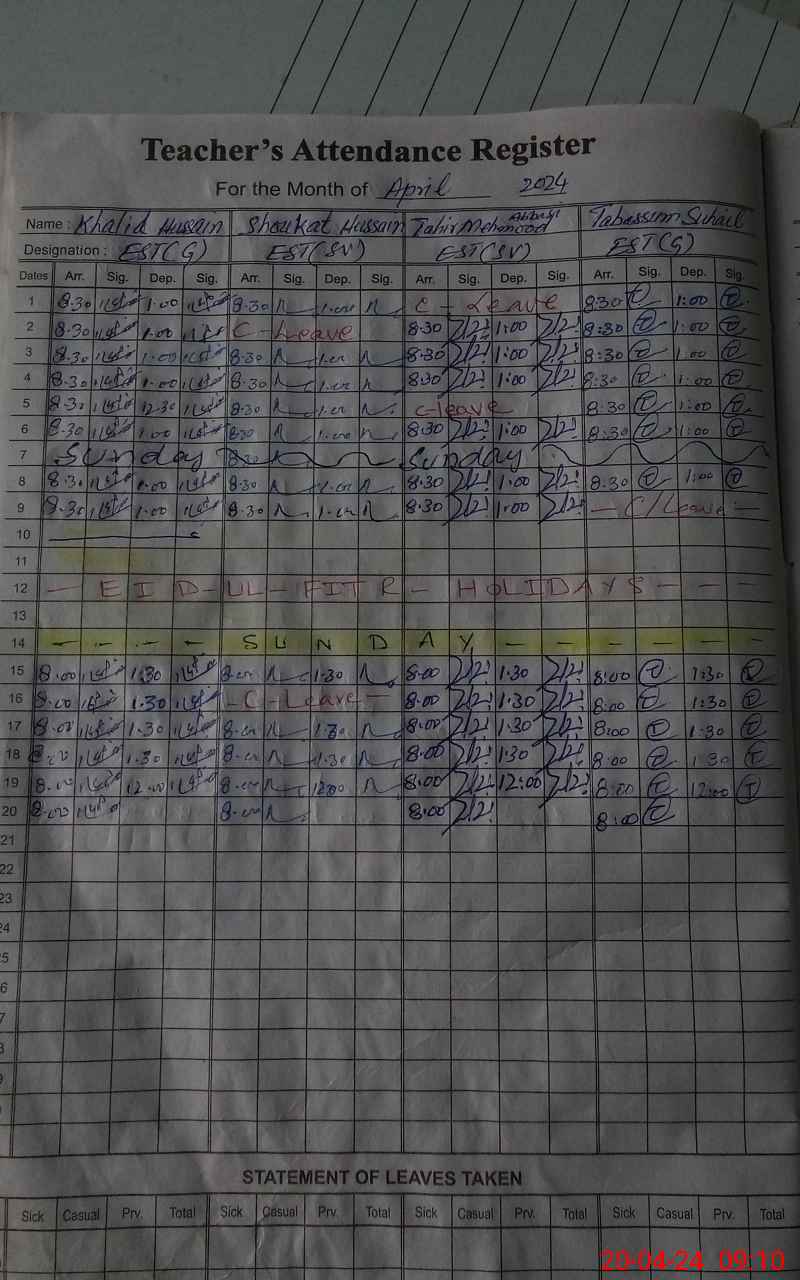 Teacher's Attendance Register
For the Month of April 2024
Name : Khalid Hussain Shoukat Hussain Tahir Mehmood Abbasi Tabassum Suhail
Designation : EST(G) EST(SV) EST(SV) EST(G)
Dates Arr. Sig. Dep. Sig. Arr. Sig. Dep. Sig. Arr. Sig. Dep. Sig. Arr. Sig. Dep. Sig.
1 8.30 1.00 8.30 1.00 C - Leave 8:30 1:00
2 8.30 1.00 C - Leave 8.30 1:00 8:30 1:00
3 8.30 1.00 8.30 1.00 8.30 1:00 8:30 1:00
4 8.30 1.00 8.30 1.00 8.30 1:00 8:30 1:00
5 8.30 12.30 8.30 1.00 C-leave 8:30 1:00
6 8.30 1.00 8.30 1.00 8.30 1:00 8:30 1:00
7 Sunday 8.30 Sunday
8 8.30 1.00 8.30 1.00 8.30 1:00 8:30 1:00
9 8.30 1.00 8.30 1.00 8.30 1:00 — C/Leave —
10
11
12 — EID-UL-FITR - HOLIDAYS - - -
13
14 — - - - SUNDAY - - - - -
15 8.00 1.30 8.00 1.30 8.00 1.30 8:00 1:30
16 8.00 1.30 - C - Leave - 8.00 1.30 8:00 1:30
17 8.00 1.30 8.00 1.30 8.00 1.30 8:00 1:30
18 8.00 1.30 8.00 1.30 8.00 1:30 8:00 1:30
19 8.00 12.00 8.00 12.00 8.00 12:00 8:00 12:00
20 8.00 8.00 8.00 8:00
21
22
23
24
5
6
7
STATEMENT OF LEAVES TAKEN
Sick Casual Prv. Total Sick Casual Prv. Total Sick Casual Prv. Total Sick Casual Prv. Total
20-04-24 09:10